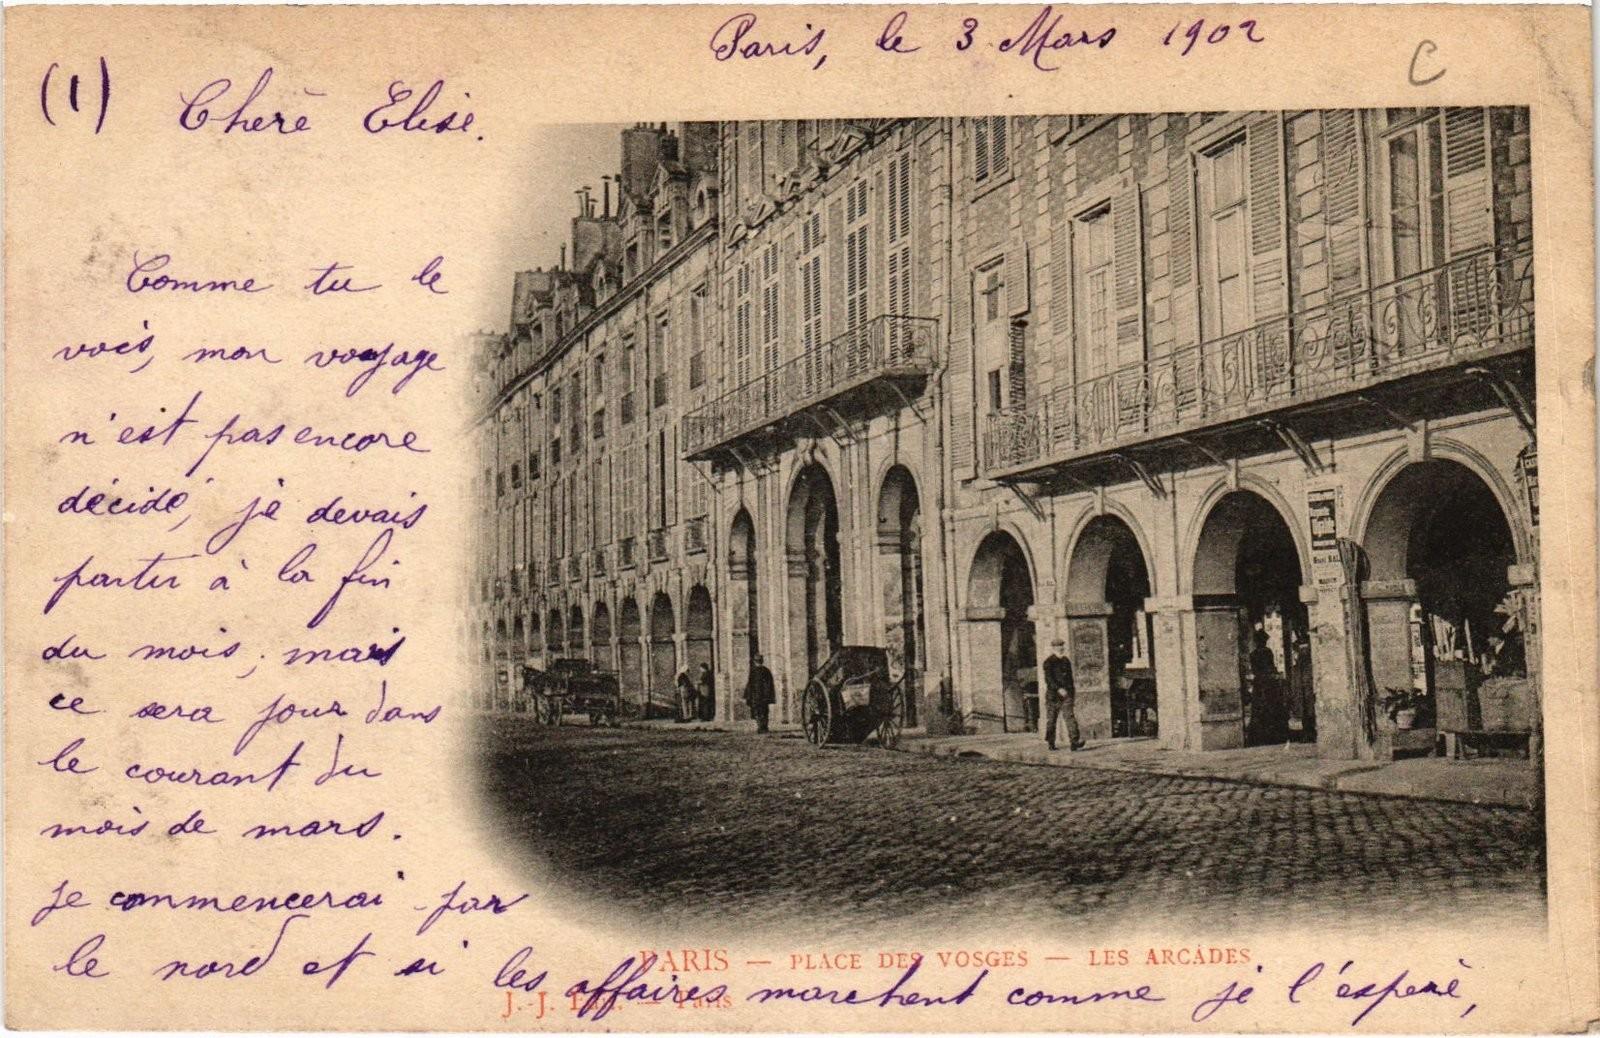 Paris, le 3 Mars 1902
C
(1) Chère Elise.
Comme tu le
vois, mon voyage
n'est pas encore
décidé, je devais
partir à la fin
du mois, mais
ce sera pour dans
le courant du
mois de mars.
Je commencerai par
le nord et si les affaires marchent comme je l'espère,
PARIS — PLACE DES VOSGES — LES ARCADES
J.-J. — Paris